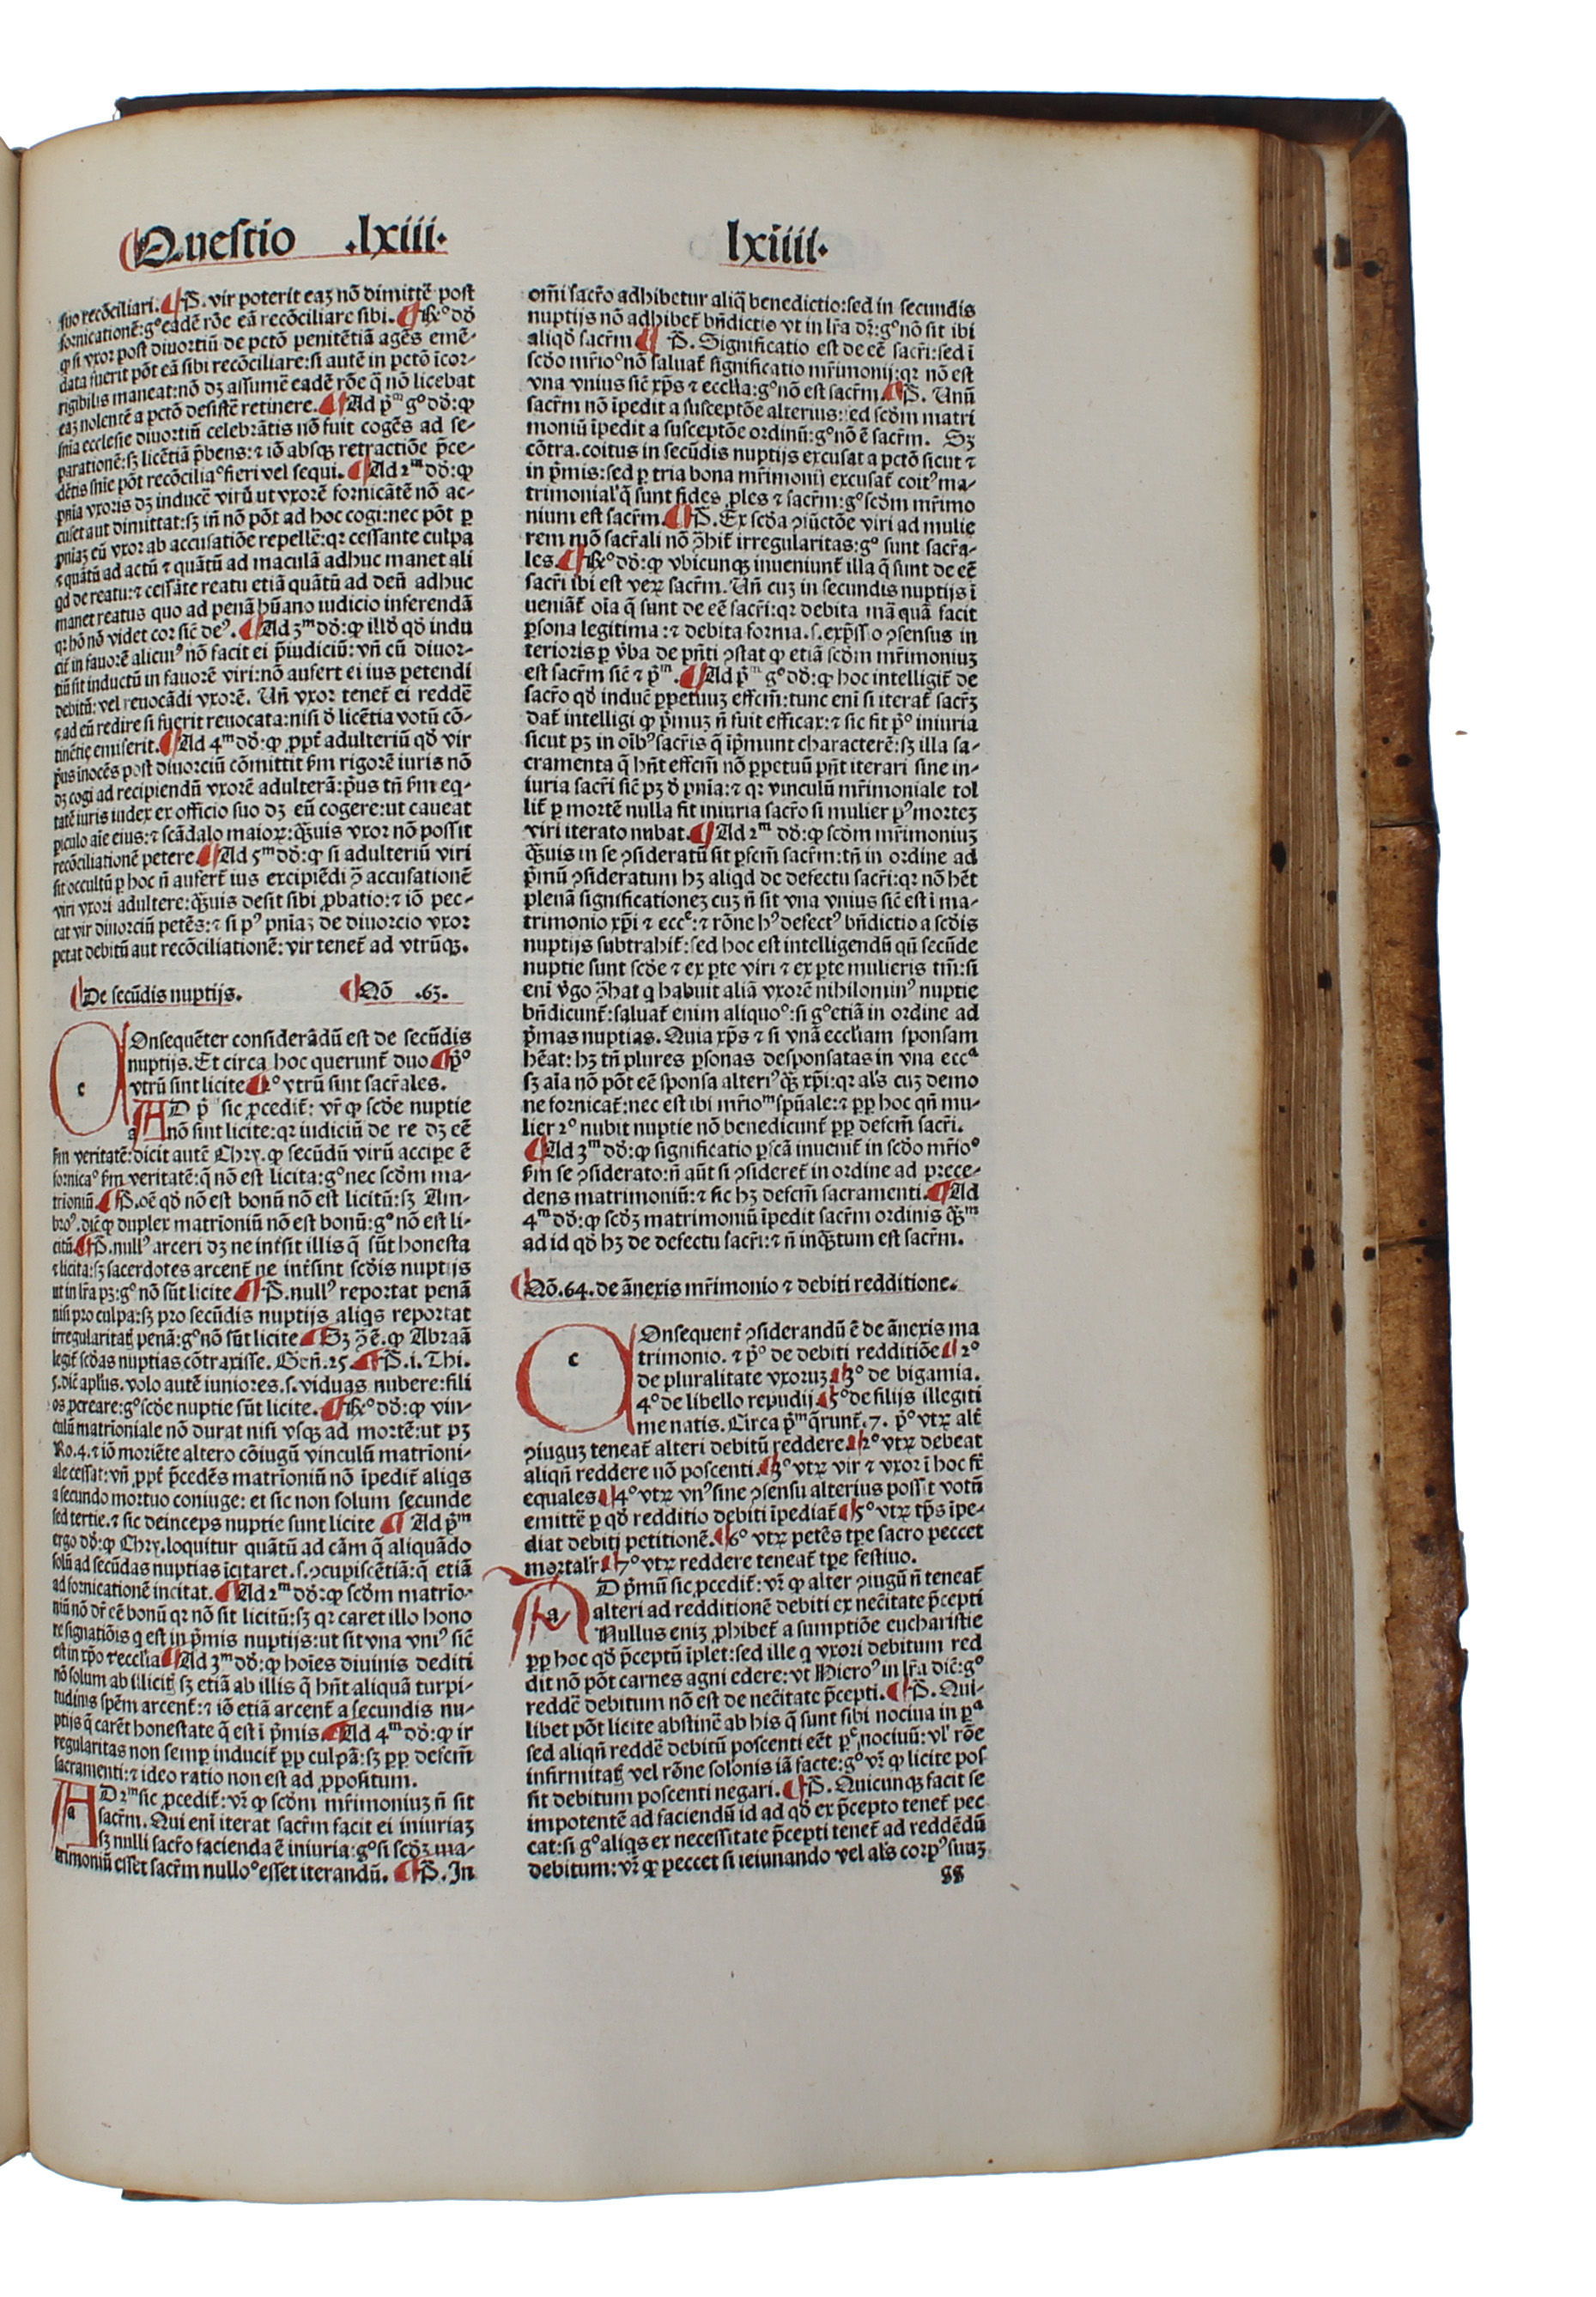 Questio .lxiii.
lxiiii.
suo recōciliari. ¶ P̄. vir poterit eaꝫ nō dimittē post
fornicationē: gº eādē rōe eā recōciliare sibi. ¶ Rº dō
ꝙ si vxor post diuortiū de pctō penitētiā agēs emē-
data fuerit pōt eā sibi recōciliare: si autē in pctō īcor-
rigibilis maneat: nō dꝫ assumē eadē rōe q̄ nō licebat
eaꝫ nolentē a pctō desistē retinere. ¶ Ad p̄ᵐ gº dō: ꝙ
snīa ecclesie diuortiū celebrātis nō fuit cogēs ad se-
parationē: sꝫ licētiā p̄bens: ⁊ iō absqꝫ retractiōe p̄ce-
dētis snīe pōt recōciliaº fieri vel sequi. ¶ Ad 2ᵐ dō: ꝙ
pnīa vxoris dꝫ inducē virū ut vxorē fornicātē nō ac-
cuset aut dimittat: sꝫ iñ nō pōt ad hoc cogi: nec pōt ꝑ
pniaꝫ eū vxor ab accusatiōe repellē: qꝛ cessante culpa
⁊ quātū ad actū ⁊ quātū ad maculā adhuc manet ali
qd de reatu: ⁊ cessāte reatu etiā quātū ad deū adhuc
manet reatus quo ad penā hūano iudicio inferendā
qꝛ hō nō videt cor sic̄ deꝰ. ¶ Ad 3ᵐ dō: ꝙ illō qō indu
cit̄ in fauorē alicuiꝰ nō facit ei p̄iudiciū: vñ cū diuor-
tiū sit inductū in fauorē viri: nō aufert ei ius petendi
debitū: vel reuocādi vxorē. Uñ vxor tenet̄ ei reddē
⁊ ad eū redire si fuerit reuocata: nisi ō licētia votū cō-
tinētie emiserit. ¶ Ad 4ᵐ dō: ꝙ ꝓpt̄ adulteriū qō vir
p̄us inocēs post diuorciū cōmittit fm rigorē iuris nō
dꝫ cogi ad recipiendū vxorē adulterā: p̄us tñ fm eq-
tatē iuris iudex ex officio suo dꝫ eū cogere: ut caueat
ꝑiculo aīe eius: ⁊ scādalo maioꝝ: qꝫuis vxor nō possit
recōciliationē petere ¶ Ad 5ᵐ dō: ꝙ si adulteriū viri
sit occultū ꝑ hoc ñ aufert̄ ius excipiēdi ꝯ̄ accusationē
viri vxori adultere: qꝫuis desit sibi ꝓbatio: ⁊ iō pec-
cat vir diuorciū petēs: ⁊ si pꝰ pniaꝫ de diuorcio vxor
petat debitū aut recōciliationē: vir tenet̄ ad vtrūqꝫ.
¶ De secūdis nuptijs. ¶ Qō .63.
c Onsequēter considerādū est de secūdis
nuptijs. Et circa hoc querunt̄ duo ¶ p̄º
vtrū sint licite ¶ 2º vtrū sint sacr̄ales.
a AD p̄ sic ꝓcedit̄: vr̄ ꝙ scōe nuptie
nō sint licite: qꝛ iudiciū de re dꝫ eē
fm veritatē: dicit autē Chrẏ. ꝙ secūdū virū accipe ē
fornicaº fm veritatē: q̄ nō est licita: gº nec scōm ma-
trioniū. ¶ P̄. oē qō nō est bonū nō est licitū: sꝫ Am-
broꝰ. dic̄ ꝙ duplex matrīoniū nō est bonū: gº nō est li-
citū. ¶ P̄. nullꝰ arceri dꝫ ne int̄sit illis q̄ sūt honesta
⁊ licita: sꝫ sacerdotes arcent̄ ne int̄sint scōis nuptijs
ut in lr̄a pꝫ: gº nō sūt licite ¶ P̄. nullꝰ reportat penā
nisi pro culpa: sꝫ pro secūdis nuptijs aliqs reportat
irregularitatꝭ penā: gº nō sūt licite ¶ Sꝫ ꝯ̄ ē. ꝙ Abraā
legit̄ scōas nuptias cōtraxisse. Geñ. 25. ¶ P̄. i. Thi.
5. dic̄ apl̄us. volo autē iuniores .s. viduas nubere: fili
os pcreare: gº scōe nuptie sūt licite. ¶ Rº dō: ꝙ vin-
culū matrīoniale nō durat nisi vsqꝫ ad mortē: ut pꝫ
Ro. 4. ⁊ iō moriēte altero cōiugū vinculū matrīoni-
ale cessat: vñ ꝓpt̄ p̄cedēs matrīoniū nō īpedit̄ aliqs
a secundo mortuo coniuge: et sic non solum secunde
sed tertie. ⁊ sic deinceps nuptie sunt licite ¶ Ad p̄ᵐ
ergo dō: ꝙ Chrẏ. loquitur quātū ad cām q̄ aliquādo
solū ad secūdas nuptias īcitaret .s. ꝯcupiscētiā: q̄ etiā
ad fornicationē incitat. ¶ Ad 2ᵐ dō: ꝙ scōm matrīo-
niū nō dr̄ eē bonū qꝛ nō sit licitū: sꝫ qꝛ caret illo hono
re signatiōis q est in p̄mis nuptijs: ut sit vna vniꝰ sic̄
est in xp̄o ⁊ eccl̄ia ¶ Ad 3ᵐ dō: ꝙ hoīes diuinis dediti
nō solum ab illicitꝭ sꝫ etiā ab illis q̄ hn̄t aliquā turpi-
tudinis spēm arcent̄: ⁊ iō etiā arcent̄ a secundis nu-
ptijs q̄ carēt honestate q̄ est ī p̄mis. ¶ Ad 4ᵐ dō: ꝙ ir
regularitas non semꝑ inducit̄ ꝓꝑ culpā: sꝫ ꝓꝑ defcm̄
sacramenti: ⁊ ideo ratio non est ad ꝓpositum.
a AD 2ᵐ sic ꝓcedit̄: vr̄ ꝙ scōm mr̄imoniuꝫ ñ sit
sacr̄m. Qui enī iterat sacr̄m facit ei iniuriaꝫ
sꝫ nulli sacr̄o facienda ē iniuria: gº si scōꝫ ma-
trimoniū esset sacr̄m nulloº esset iterandū. ¶ P̄. In
om̄i sacr̄o adhibetur aliq̄ benedictio: sed in secundis
nuptijs nō adhibet̄ bn̄dictio vt in lr̄a dr̄: gº nō sit ibi
aliqō sacr̄m ¶ P̄. Significatio est de eē sacr̄i: sed ī
scōo mr̄ioº nō saluat̄ significatio mr̄imonij: qꝛ nō est
vna vnius sic̄ xp̄s ⁊ eccl̄ia: gº nō est sacr̄m ¶ P̄. Unū
sacr̄m nō īpedit a susceptōe alterius: sed scōm matri
moniū īpedit a susceptōe ordinū: gº nō ē sacr̄m. Sꝫ
cōtra. coitus in secūdis nuptijs excusat̄ a pctō sicut ⁊
in p̄mis: sed ꝑ tria bona mr̄imonij excusat̄ coitꝰ ma-
trimonial' q̄ sunt fides ꝓles ⁊ sacr̄m: gº scōm mr̄imo
nium est sacr̄m. ¶ P̄. Ex scōa ꝯiūctōe viri ad mulie
rem nō sacr̄ali nō ꝯ̄hit̄ irregularitas: gº sunt sacr̄a-
les. ¶ Rº dō: ꝙ vbicunqꝫ inueniunt̄ illa q̄ sunt de eē
sacr̄i ibi est veꝝ sacr̄m. Uñ cuꝫ in secundis nuptijs ī
ueniāt̄ oīa q̄ sunt de eē sacr̄i: qꝛ debita mā quā facit
ꝑsona legitima: ⁊ debita forma .s. exp̄ssio ꝯsensus in
terioris ꝑ v̄ba de pn̄ti ꝯstat ꝙ etiā scōm mr̄imoniuꝫ
est sacr̄m sic̄ ⁊ p̄ᵐ. ¶ Ad p̄ᵐ gº dō: ꝙ hoc intelligit̄ de
sacr̄o qō induc̄ ꝑpetuuꝫ effcm̄: tunc enī si iterat̄ sacr̄ꝫ
dat̄ intelligi ꝙ p̄muꝫ ñ fuit efficax: ⁊ sic fit p̄º iniuria
sicut pꝫ in oībꝰ sacr̄is q̄ īp̄munt characterē: sꝫ illa sa-
cramenta q̄ hn̄t effcm̄ nō ꝑpetuū pn̄t iterari sine in-
iuria sacr̄i sic̄ pꝫ ō pnīa: ⁊ qꝛ vinculū mr̄imoniale tol
lit̄ ꝑ mortē nulla fit iniuria sacr̄o si mulier pꝰ morteꝫ
viri iterato nubat. ¶ Ad 2ᵐ dō: ꝙ scōm mr̄imoniuꝫ
qꝫuis in se ꝯsideratū sit ꝑfcm̄ sacr̄m: tñ in ordine ad
p̄mū ꝯsideratum hꝫ aliqd de defectu sacr̄i: qꝛ nō hēt
plenā significationeꝫ cuꝫ ñ sit vna vnius sic̄ est ī ma-
trimonio xp̄i ⁊ eccᵉ: ⁊ rōne hꝰ defectꝰ bn̄dictio a scōis
nuptijs subtrahit̄: sed hoc est intelligendū qn̄ secūde
nuptie sunt scōe ⁊ ex ꝑte viri ⁊ ex ꝑte mulieris tm̄: si
enī v̄go ꝯ̄hat q habuit aliā vxorē nihilominꝰ nuptie
bn̄dicunt̄: saluat̄ enim aliquoº: si gº etiā in ordine ad
p̄mas nuptias. Quia xp̄s ⁊ si vnā eccl̄iam sponsam
hēat: hꝫ tñ plures ꝑsonas desponsatas in vna eccᵃ
sꝫ aīa nō pōt eē sponsa alteriꝰ qꝫ xp̄i: qꝛ al's cuꝫ demo
ne fornicat̄: nec est ibi mr̄ioᵐ spūale: ⁊ ꝓꝑ hoc qn̄ mu-
lier 2º nubit nuptie nō benedicunt̄ ꝓꝑ defcm̄ sacr̄i.
¶ Ad 3ᵐ dō: ꝙ significatio ꝑfcā inuenit̄ in scōo mr̄ioº
fm se ꝯsiderato: ñ aūt si ꝯsideret̄ in ordine ad prece-
dens matrimoniū: ⁊ sic hꝫ defcm̄ sacramenti. ¶ Ad
4ᵐ dō: ꝙ scōꝫ matrimoniū īpedit sacr̄m ordinis qꝫᵐ
ad id qō hꝫ de defectu sacr̄i: ⁊ ñ inqꝫtum est sacr̄m.
¶ Qō. 64. de ānexis mr̄imonio ⁊ debiti redditione.
c Onsequent̄ ꝯsiderandū ē de ānexis ma
trimonio. ⁊ p̄º de debiti redditiōe ¶ 2º
de pluralitate vxoruꝫ ¶ 3º de bigamia.
4º de libello repudij ¶ 5º de filijs illegiti
me natis. Circa p̄ᵐ q̄runt̄ .7. p̄º vtꝝ alt̄
ꝯiuguꝫ teneat̄ alteri debitū reddere ¶ 2º vtꝝ debeat
aliqn̄ reddere nō poscenti. ¶ 3º vtꝝ vir ⁊ vxor ī hoc st̄
equales ¶ 4º vtꝝ vnꝰ sine ꝯsensu alterius possit votū
emittē ꝑ qō redditio debiti īpediat̄ ¶ 5º vtꝝ tp̄s īpe-
diat debiti petitionē. ¶ 6º vtꝝ petēs tp̄e sacro peccet
mortal'r ¶ 7º vtꝝ reddere teneat̄ tp̄e festiuo.
a AD p̄mū sic ꝓcedit̄: vr̄ ꝙ alter ꝯiugū ñ teneat̄
alteri ad redditionē debiti ex nec̄itate p̄cepti
Nullus eniꝫ ꝓhibet̄ a sumptiōe eucharistie
ꝓꝑ hoc qō p̄ceptū īplet: sed ille q vxori debitum red
dit nō pōt carnes agni edere: vt Hieroꝰ in lr̄a dic̄: gº
reddē debitum nō est de nec̄itate p̄cepti. ¶ P̄. Qui-
libet pōt licite abstinē ab his q̄ sunt sibi nociua in pᵃ
sed aliqn̄ reddē debitū poscenti eēt pᵉ nociuū: vl' rōe
infirmitatꝭ vel rōne solonis iā facte: gº vr̄ ꝙ licite pos
sit debitum poscenti negari. ¶ P̄. Quicunqꝫ facit se
impotentē ad faciendū id ad qō ex p̄cepto tenet̄ pec
cat: si gº aliqs ex necessitate p̄cepti tenet̄ ad reddēdū
debitum: vr̄ ꝙ peccet si ieiunando vel al's corpꝰ suuꝫ
gg